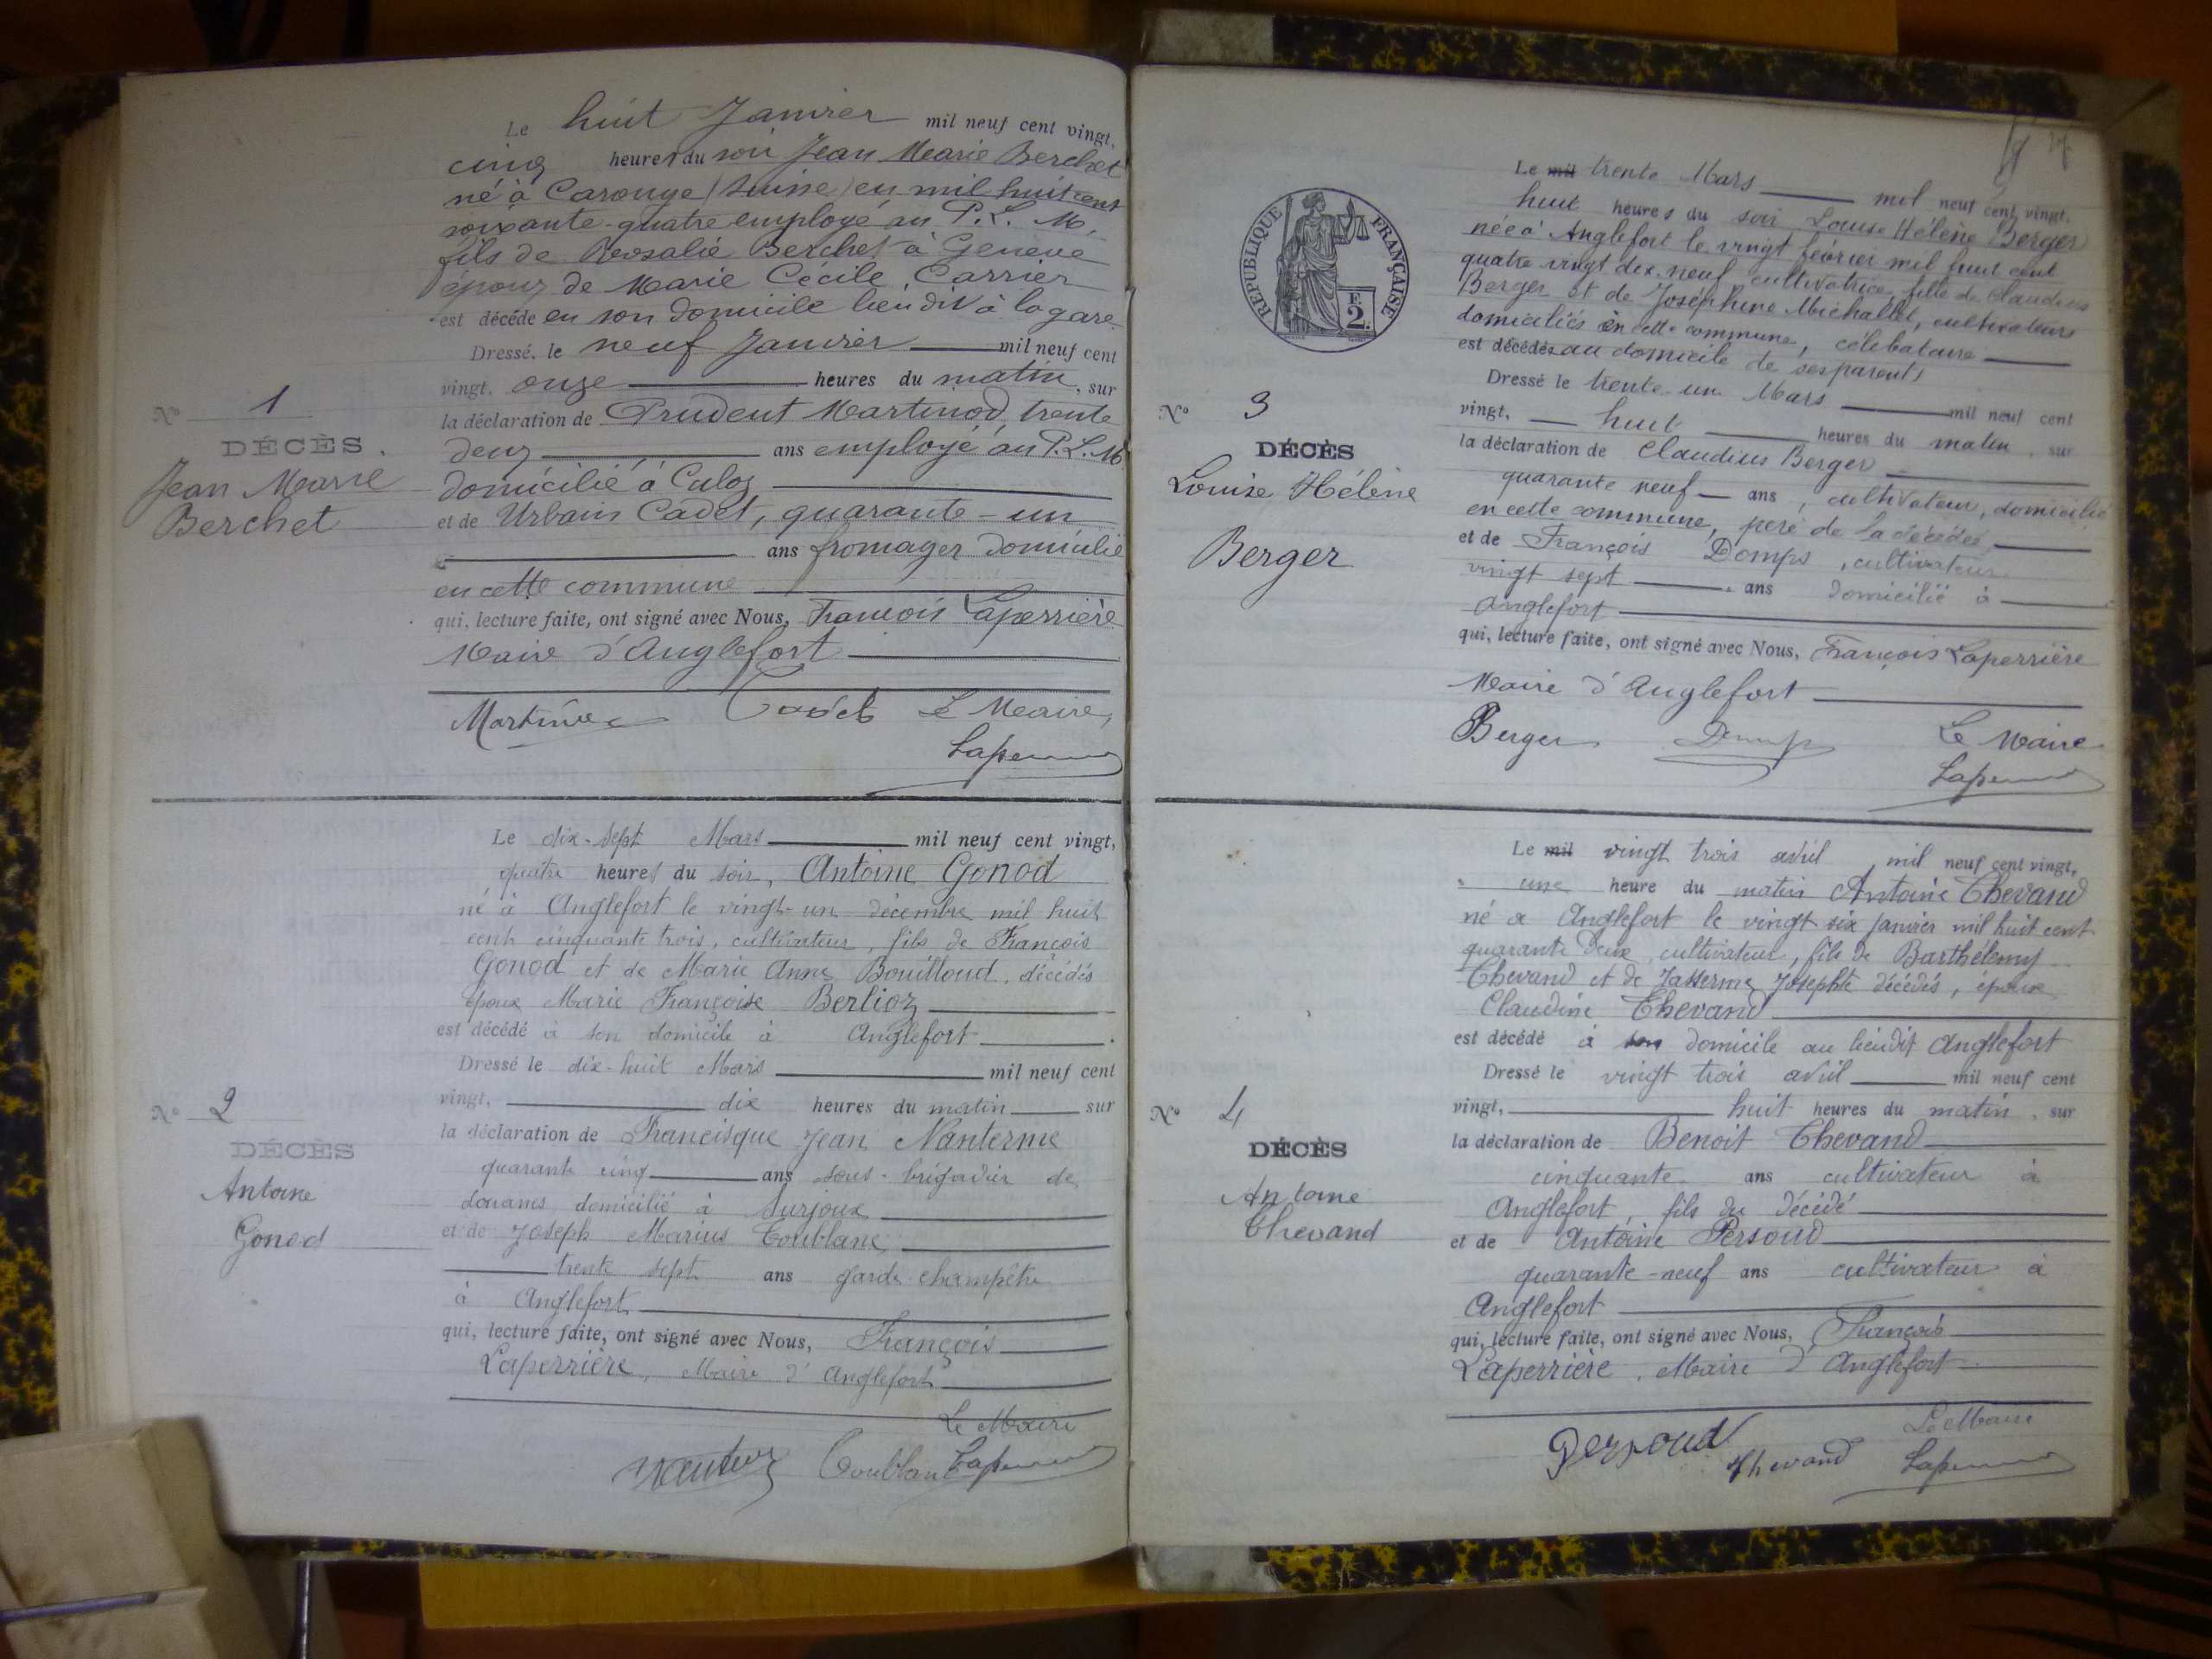 Le huit Janvier mil neuf cent vingt,
cinq heures du soir Jean Marie Berchet
né à Carouge (Suisse) en mil huit cent
soixante-quatre employé au P. L. M.
fils de Rosalie Berchet à Genève
époux de Marie Cécile Carrier
est décédé en son domicile lieu dit à la gare
Dressé, le neuf Janvier mil neuf cent
vingt, onze heures du matin, sur
la déclaration de Prudent Martinod, trente
deux ans employé au P. L. M
domicilié à Culoz
et de Urbain Cadet, quarante-un
ans fromager domicilié
en cette commune
qui, lecture faite, ont signé avec Nous, François Laperrière
Maire d'Anglefort
N° 1
DÉCÈS.
Jean Marie
Berchet
Cadet Le Maire,
Le dix-sept Mars mil neuf cent vingt,
quatre heures du soir, Antoine Gonod
né à Anglefort le vingt-un décembre mil huit
cent cinquante trois, cultivateur, fils de François
Gonod et de Marie Anne Bouilloud, décédés
époux Marie Françoise Berlioz
est décédé à son domicile à Anglefort.
Dressé le dix-huit Mars mil neuf cent
vingt, dix heures du matin sur
la déclaration de Francisque Jean Nanterme
quarante cinq ans sous-brigadier de
douanes, domicilié à Surjoux
et de Joseph Marius Coublanc
trente sept ans garde champêtre
à Anglefort
qui, lecture faite, ont signé avec Nous, François
Laperrière, Maire d'Anglefort
N° 2
DÉCÈS
Antoine
Gonod
Le Maire
Coublanc
RÉPUBLIQUE FRANÇAISE
F.
2.
Le mil trente Mars mil neuf cent vingt,
huit heures du soir Louise Hélène Berger
née à Anglefort le vingt février mil huit cent
quatre vingt dix-neuf, cultivatrice, fille de Claudius
Berger et de Joséphine Michallet, cultivateurs
domiciliés en cette commune, célibataire
est décédée au domicile de ses parents
Dressé le trente-un Mars mil neuf cent
vingt, huit heures du matin, sur
la déclaration de Claudius Berger
quarante neuf ans, cultivateur, domicilié
en cette commune, père de la décédée,
et de François Domps, cultivateur
vingt sept ans domicilié à
Anglefort
qui, lecture faite, ont signé avec Nous, François Laperrière
Maire d'Anglefort
N° 3
DÉCÈS
Louise Hélène
Berger
Berger Le Maire
Le mil vingt trois avril, mil neuf cent vingt,
une heure du matin Antoine Thevand
né à Anglefort le vingt six janvier mil huit cent
quarante deux, cultivateur, fils de Barthélemy
Thevand et de Josephte décédés, époux
Claudine Thevand
est décédé à son domicile au lieudit Anglefort
Dressé le vingt trois avril mil neuf cent
vingt, huit heures du matin, sur
la déclaration de Benoit Thevand
cinquante ans cultivateur à
Anglefort, fils du décédé
et de Antoine Persoud
quarante-neuf ans cultivateur à
Anglefort
qui, lecture faite, ont signé avec Nous, François
Laperrière, Maire d'Anglefort
N° 4
DÉCÈS
Antoine
Thevand
Persoud Thevand Le Maire